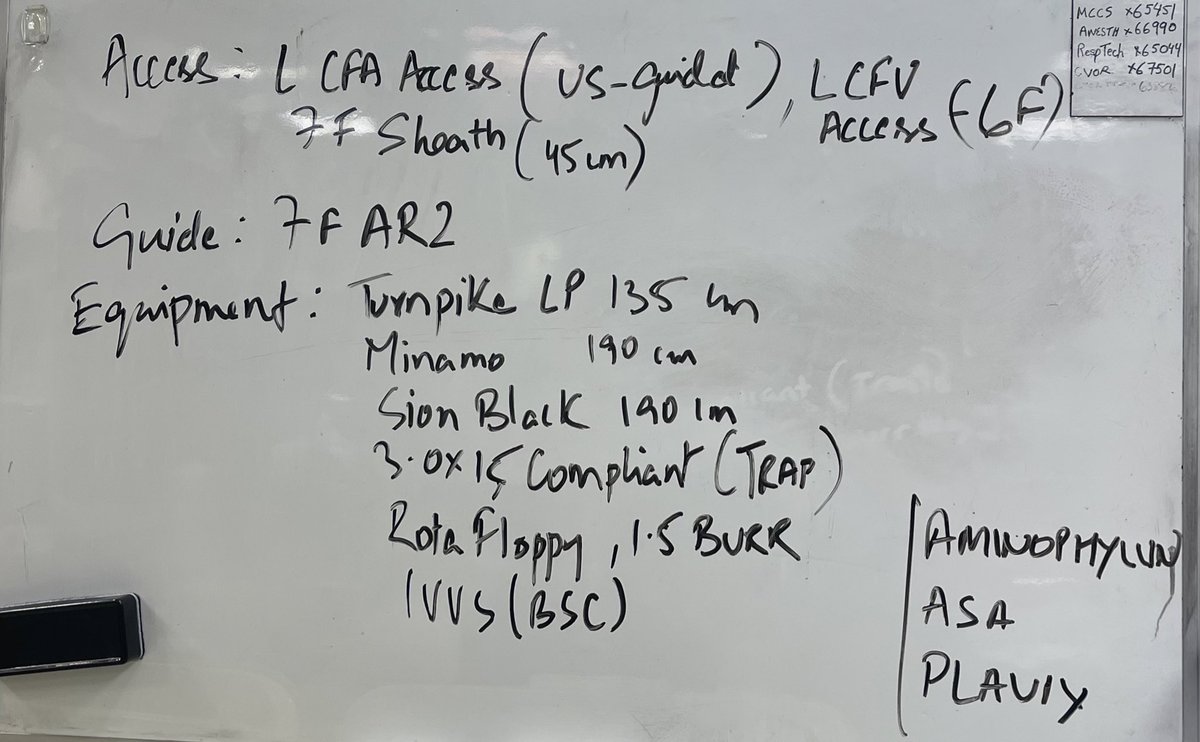 Access: L CFA Access (US-guided), LCFV ACCESS (6F)
7F Sheath (45cm)
Guide: 7F AR2
Equipment: Turnpike LP 135 cm
Minamo 190 cm
Sion Black 190 cm
3.0x15 Compliant (TRAP)
Rota Floppy, 1.5 BURR
IVUS (BSC)
AMINOPHYLLIN
ASA
PLAVIX
MCCS x65451
ANESTH x66990
RespTech x65044
CVOR x67501